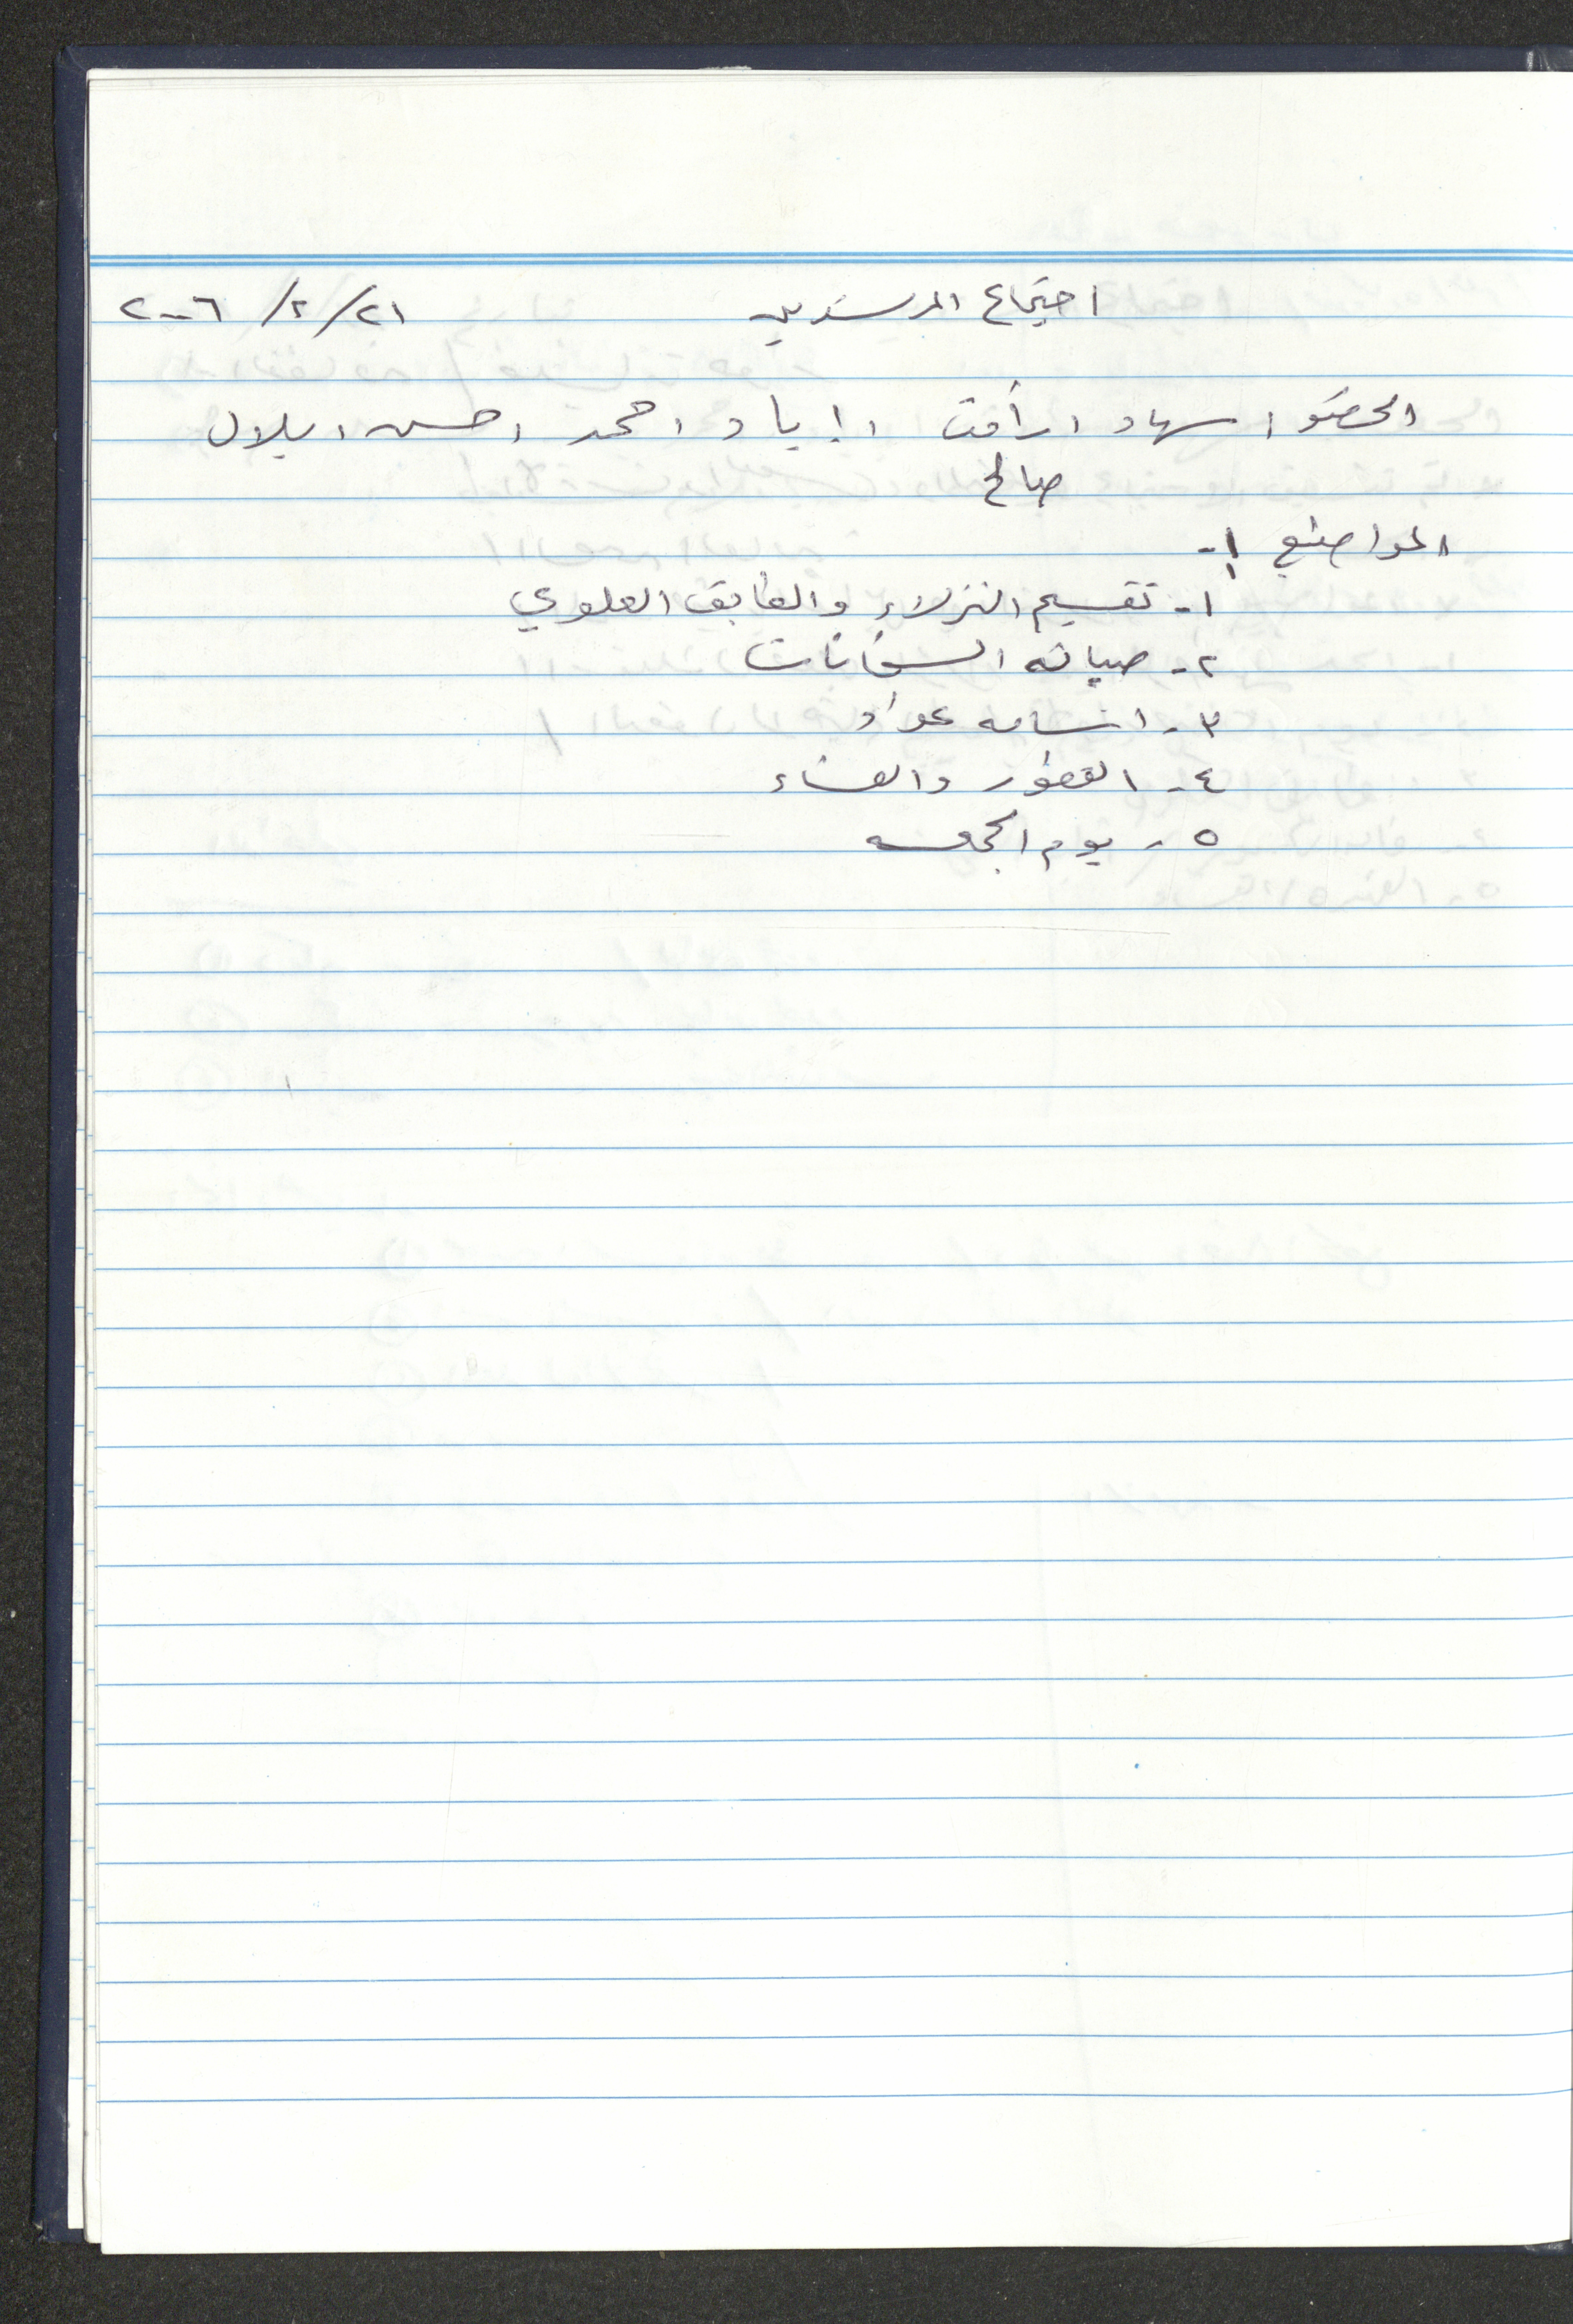 اجتماع المرشدين ٢١/٢/٢٠٠٦
الحضور سهاد، رأفت، إياد، محمد، حسن، بلال
صالح
المواضيع :-
١- تقسيم النزلاء والطابق العلوي
٢- صيانة السخانات
٣- اسامه عواد
٤- الفطور والعشاء
٥- يوم الجمعه